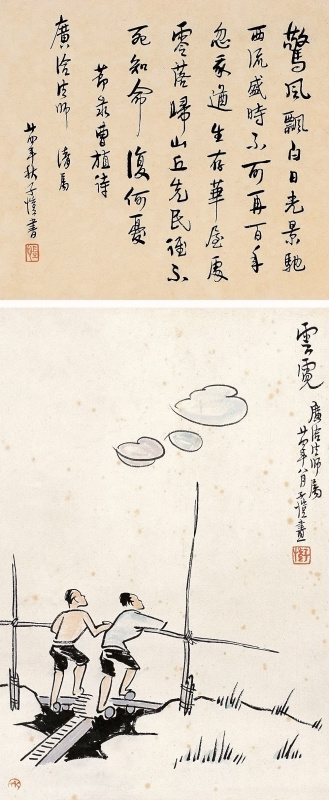 驚風飄白日光景馳
西流盛時不可再百年
忽我遒生存華屋處
零落歸山丘先民誰不
死知命復何憂
節录曹植詩
廣洽法師 清屬
廿四年秋子愷書
雲霓
廣洽法師屬
廿四年八月子愷畫